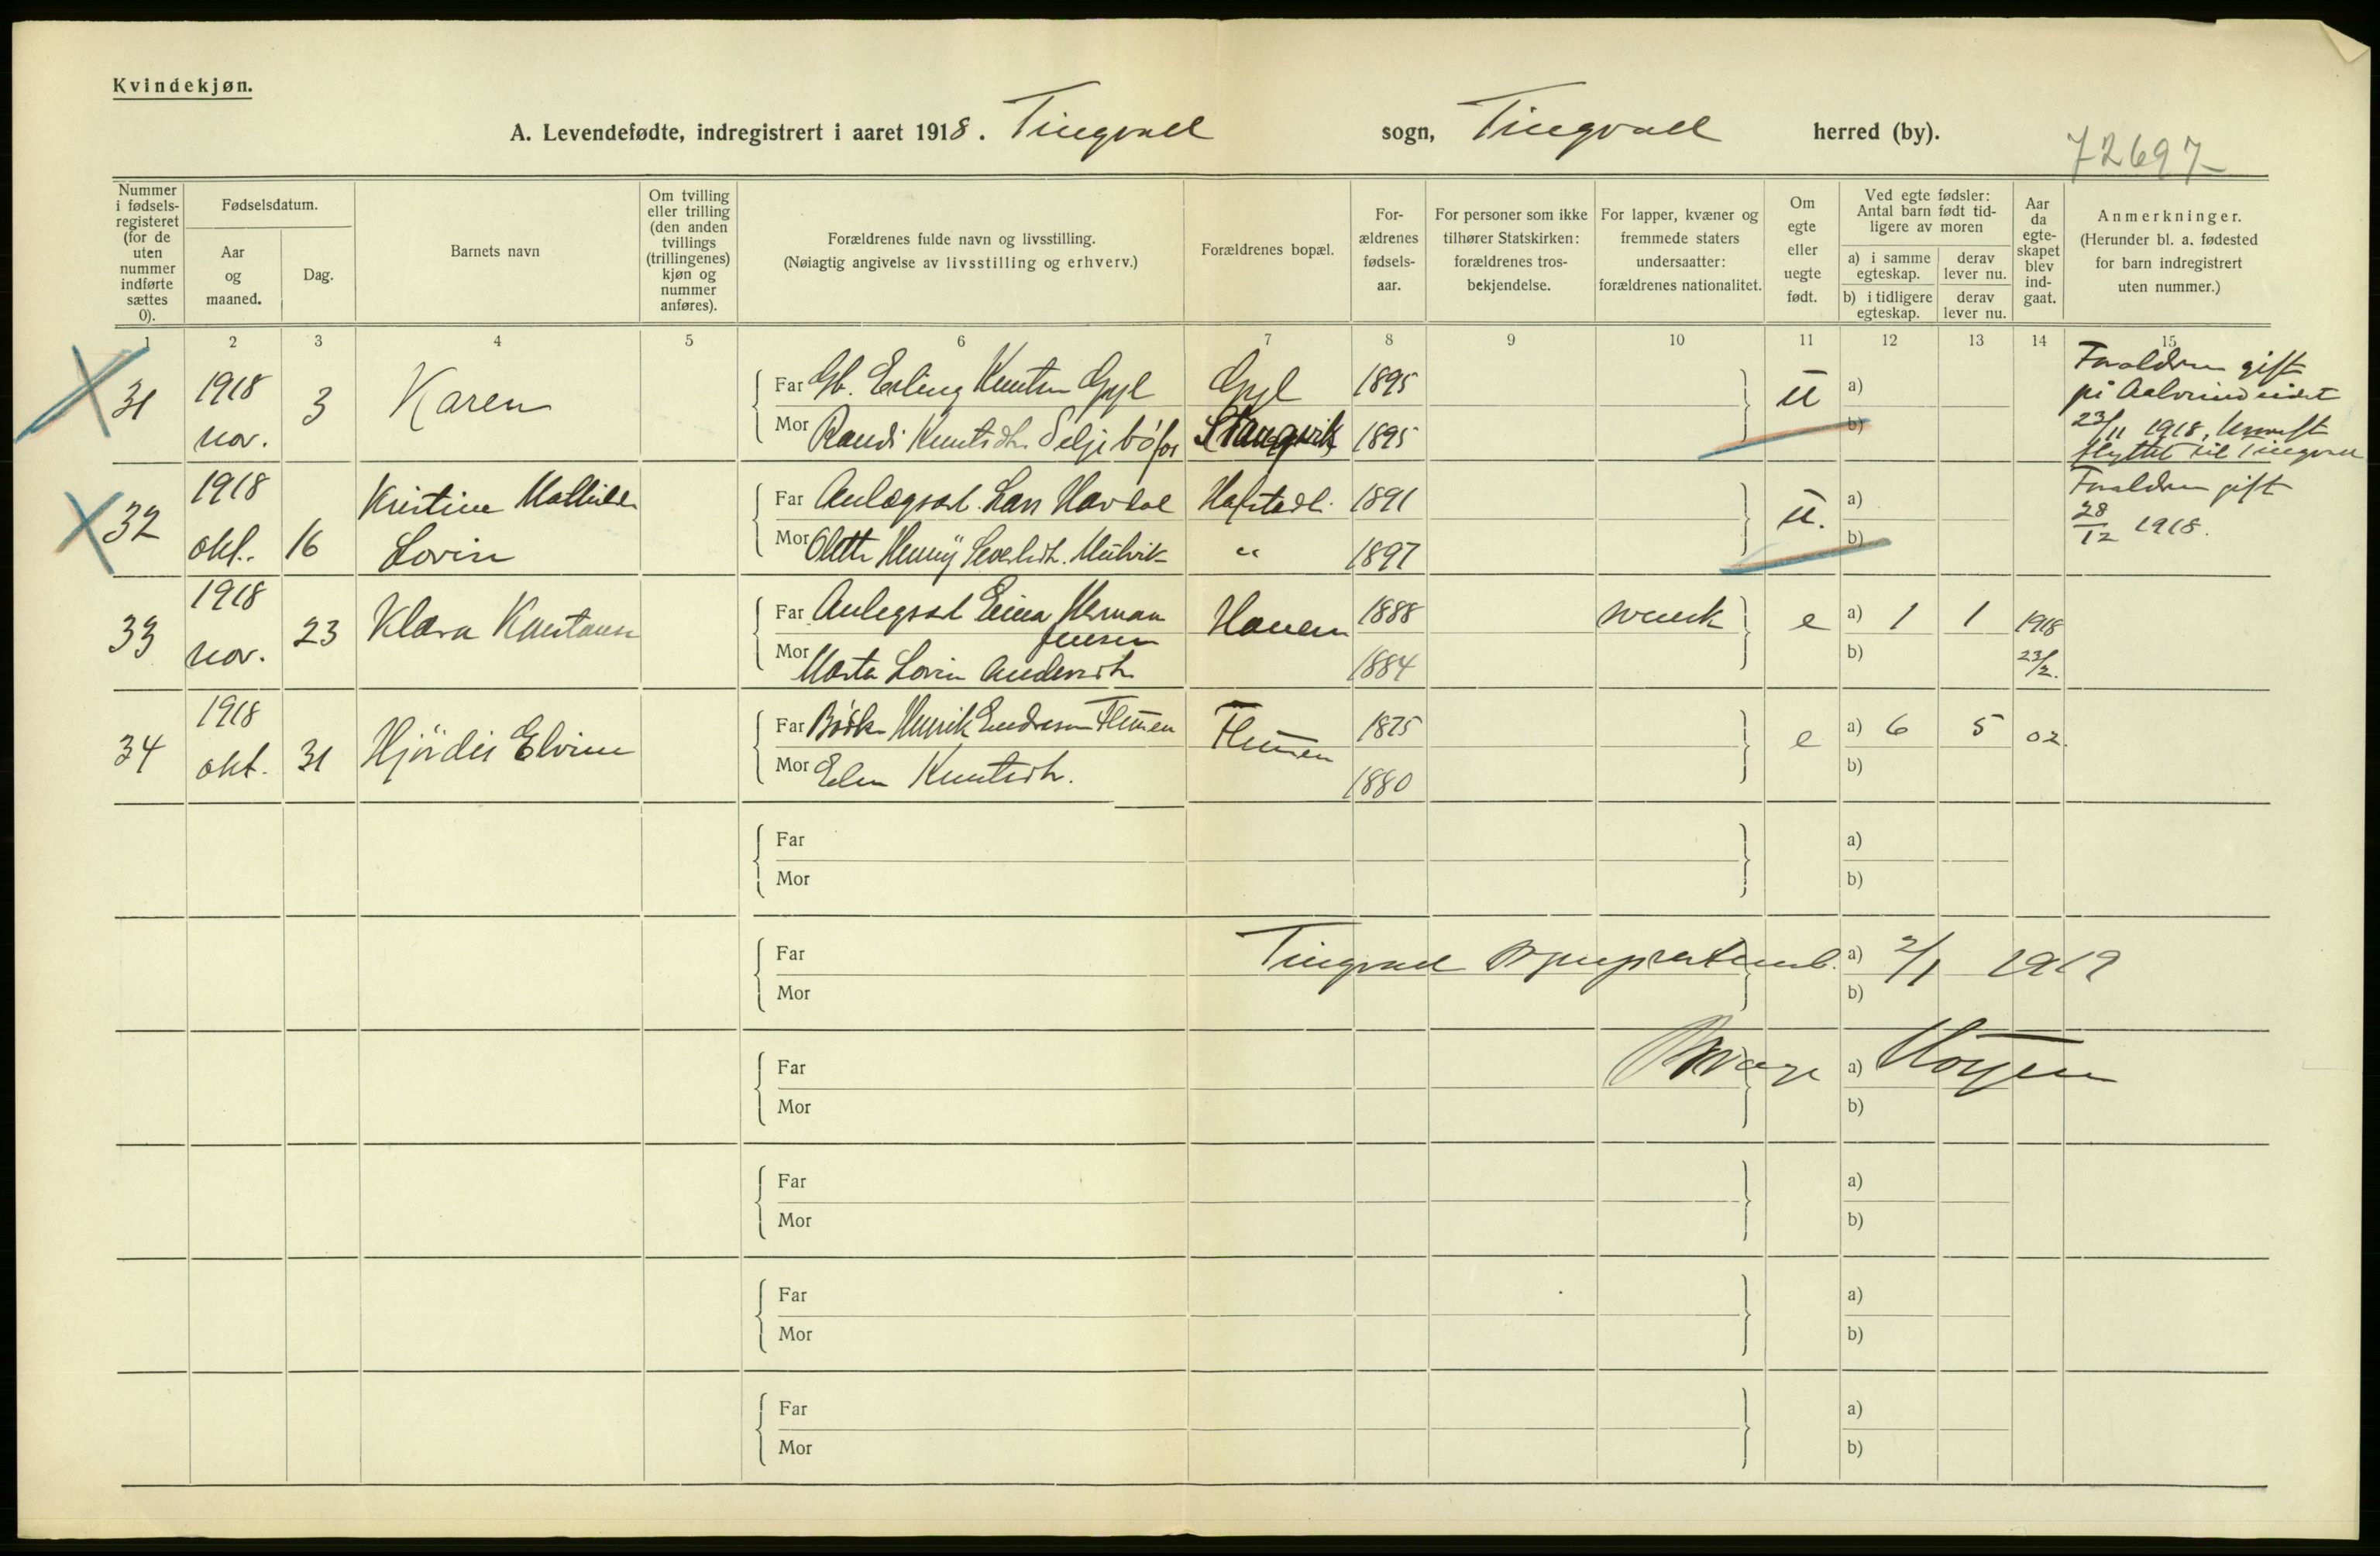 Kvindekjøn.
A. Levendefødte, indregistrert i aaret 1918. Tingvoll sogn, Tingvoll herred (by).
72697
Nummer i fødsels-registeret (for de uten nummer indførte sættes 0).
Fødselsdatum.
Aar og maaned.
Dag.
Barnets navn
Om tvilling eller trilling (den anden tvillings (trillingenes) kjøn og nummer anføres).
Forældrenes fulde navn og livsstilling.
(Nøiagtig angivelse av livsstilling og erhverv.)
Forældrenes bopæl.
For-ældrenes fødsels-aar.
For personer som ikke tilhører Statskirken: forældrenes tros-bekjendelse.
For lapper, kvæner og fremmede staters undersaatter: forældrenes nationalitet.
Om egte eller uegte født.
Ved egte fødsler: Antal barn født tid-ligere av moren
a) i samme egteskap.
derav lever nu.
b) i tidligere egteskap.
derav lever nu.
Aar da egte-skapet blev ind-gaat.
Anmerkninger.
(Herunder bl. a. fødested for barn indregistrert uten nummer.)
1 2 3 4 5 6 7 8 9 10 11 12 13 14 15
31 1918 nov. 3 Karen
Far Gb. Erling Knutsen Gyl Gyl 1895
Mor Randi Knutsdtr. Seljebø Stangvik 1895
u a)
b)
Forældrene gift
på Aalvundeidet
23/11 1918,
flyttet til Tingvoll
32 1918 okt. 16 Kristine Mathilde
Lovise
Far Anlægsarb. Lars Hafstad. 1891
Mor Olette Henny " 1897
u. a)
b)
Forældrene gift
28/12 1918.
33 1918 nov. 23 Klara Konstanse
Far Anlegsarb Einar Herman Jensen Hanem 1888
Mor Marta Lovise Andersdtr. 1884
svensk e a) 1 1 1918 23/2.
b)
34 1918 okt. 31 Hjördis Elvine
Far Henrik Endresen Flemmen Flemmen 1875
Mor Elen Knutsdtr. 1880
e a) 6 5 02.
b)
Far a)
Mor b)
Far Tingvoll a) 2/1 1919
Mor b)
Far a)
Mor b)
Far a)
Mor b)
Far a)
Mor b)
Far a)
Mor b)